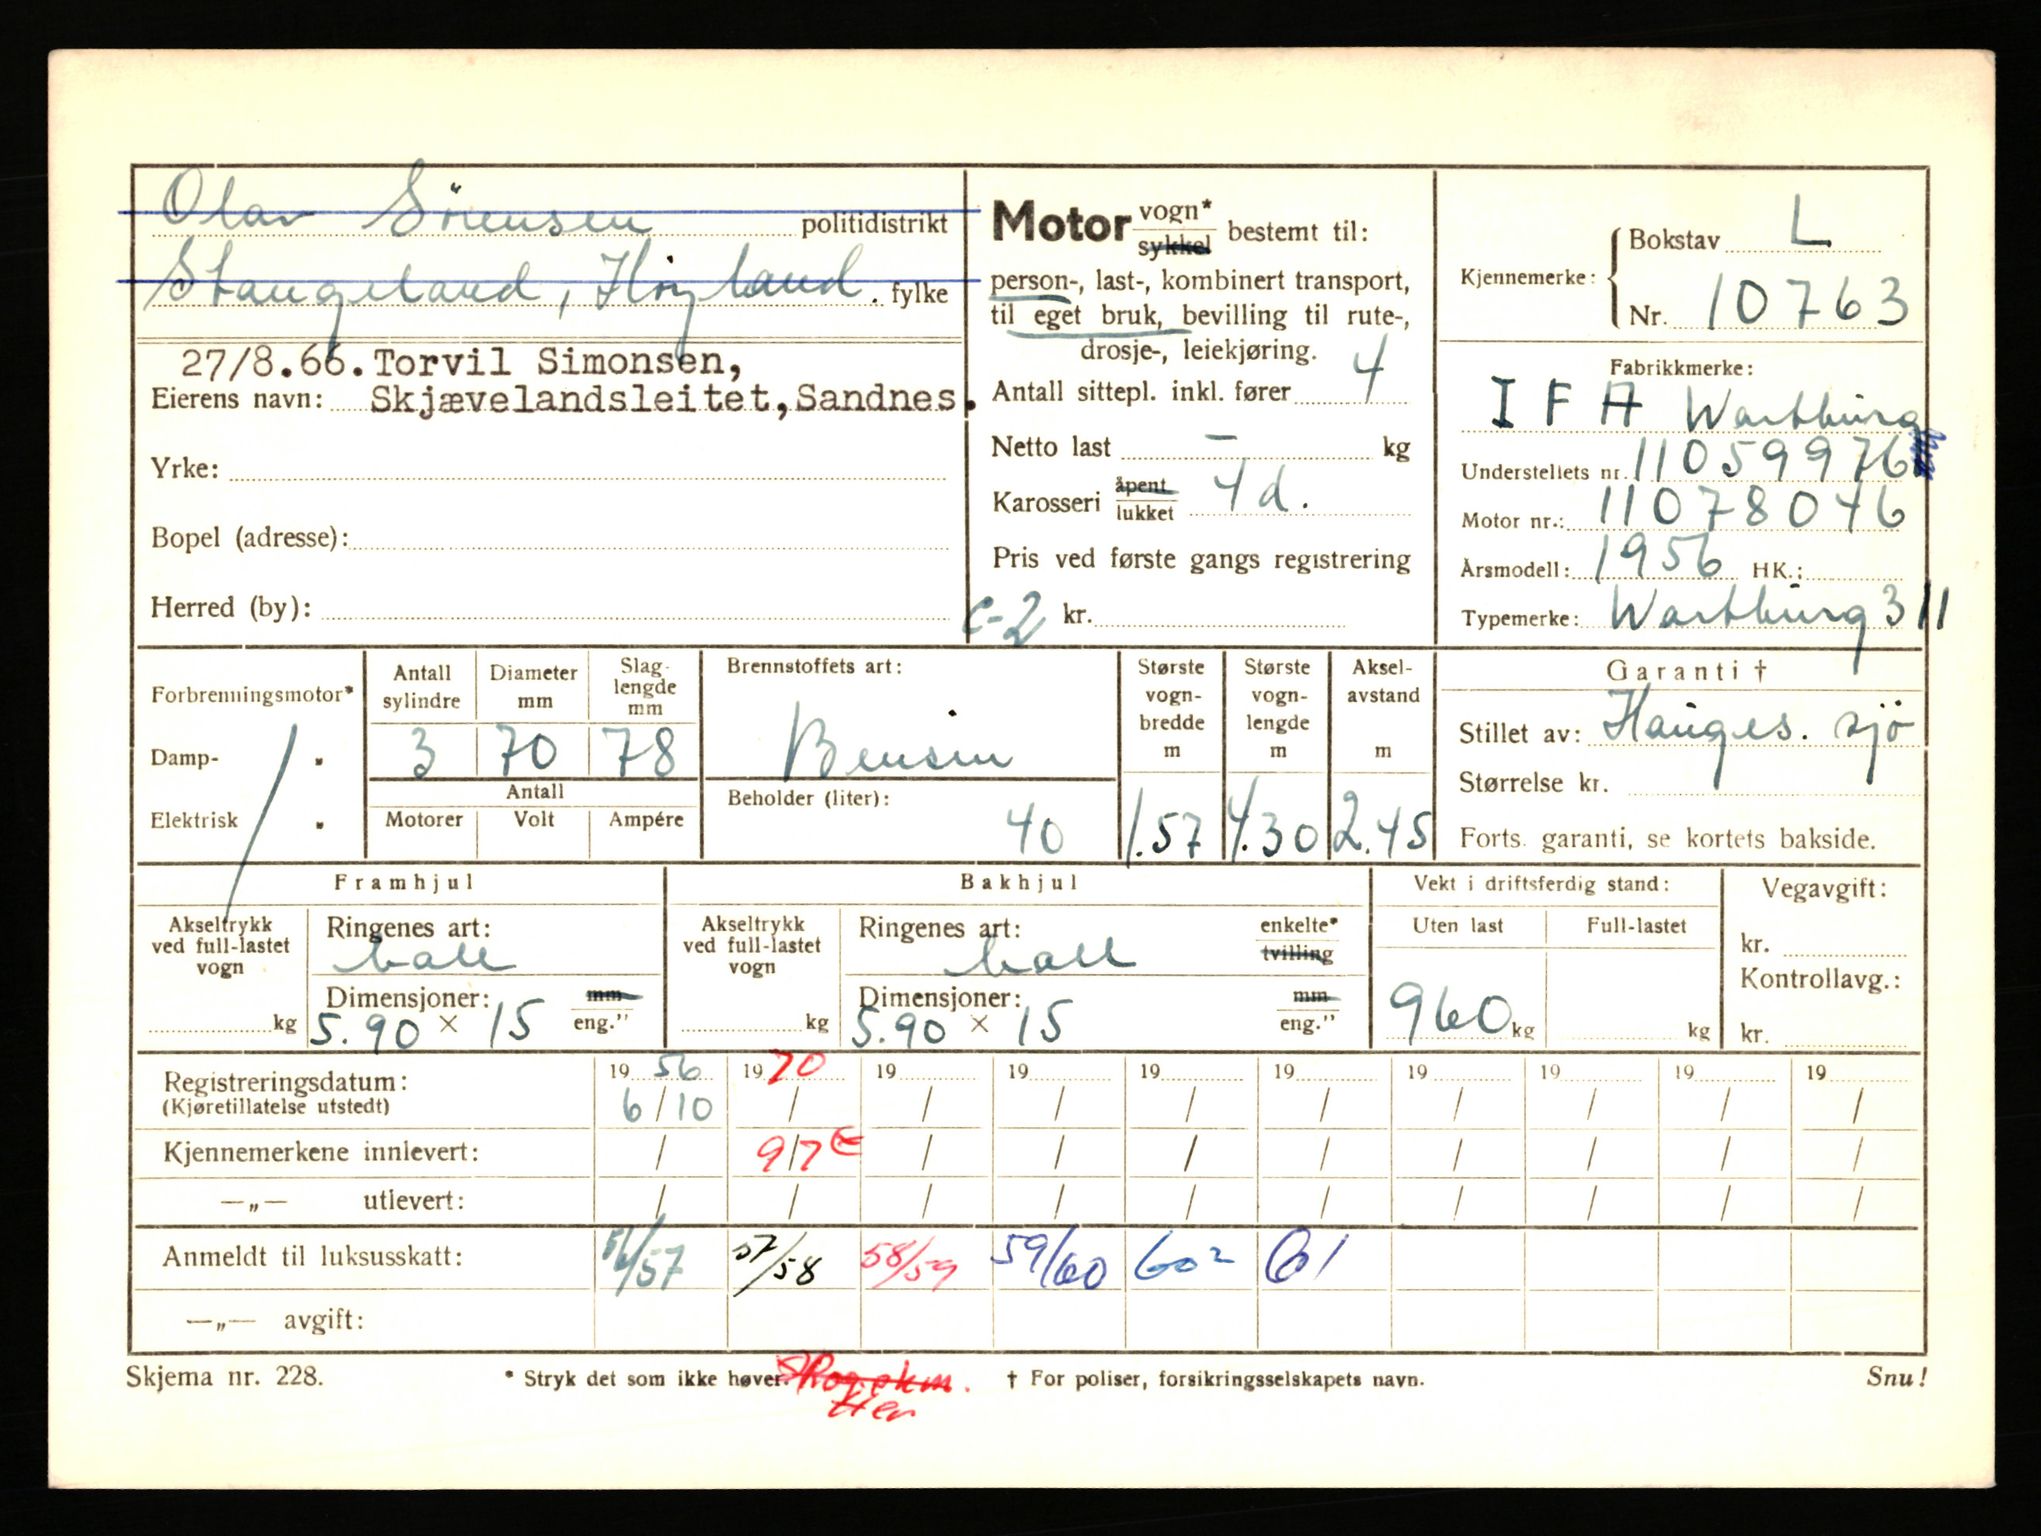 Olav Sörensen politidistrikt
Stangeland, Höyland. fylke
27/8.66. Torvil Simonsen,
Eierens navn: Skjævelandsleitet, Sandnes.
Yrke:
Bopel (adresse):
Herred (by):
Motor vogn* sykkel bestemt til:
person-, last-, kombinert transport,
til eget bruk, bevilling til rute-,
drosje-, leiekjøring.
Antall sittepl. inkl. fører 4
Netto last – kg
Karosseri åpent lukket 4 d.
Pris ved første gangs registrering
C-2 kr.
Kjennemerke: Bokstav L
Nr. 10763
Fabrikkmerke:
IFA Wartburg
Understellets nr. 11059976
Motor nr.: 11078046
Årsmodell: 1956 HK.:
Typemerke: Wartburg 311
Forbrenningsmotor*
Damp- "
Elektrisk "
Antall sylindre Diameter mm Slaglengde mm
3 70 78
Antall
Motorer Volt Ampére
Brennstoffets art:
Bensin
Beholder (liter):
40
Største vogn-bredde m Største vogn-lengde m Aksel-avstand m
1.57 4.30 2.45
Garanti †
Stillet av: Hauges. sjö
Størrelse kr.
Forts. garanti, se kortets bakside.
Framhjul
Akseltrykk ved full-lastet vogn
kg
Ringenes art:
ball
Dimensjoner: mm
5.90 × 15 eng."
Bakhjul
Akseltrykk ved full-lastet vogn
kg
Ringenes art: enkelte*
ball tvilling
Dimensjoner: mm
5.90 × 15 eng."
Vekt i driftsferdig stand:
Uten last Full-lastet
960 kg kg
Vegavgift:
kr.
Kontrollavg.:
kr.
Registreringsdatum: 19 56 19 70 19 19 19 19 19 19 19 19
(Kjøretillatelse utstedt) 6/10 / / / / / / / / /
Kjennemerkene innlevert: / 9/7 / / / / / / / /
—„— utlevert: / / / / / / / / / /
Anmeldt til luksusskatt: 56/57 57/58 58/59 59/60 60² 61
—„— avgift:
Skjema nr. 228. * Stryk det som ikke høver. † For poliser, forsikringsselskapets navn. Snu!